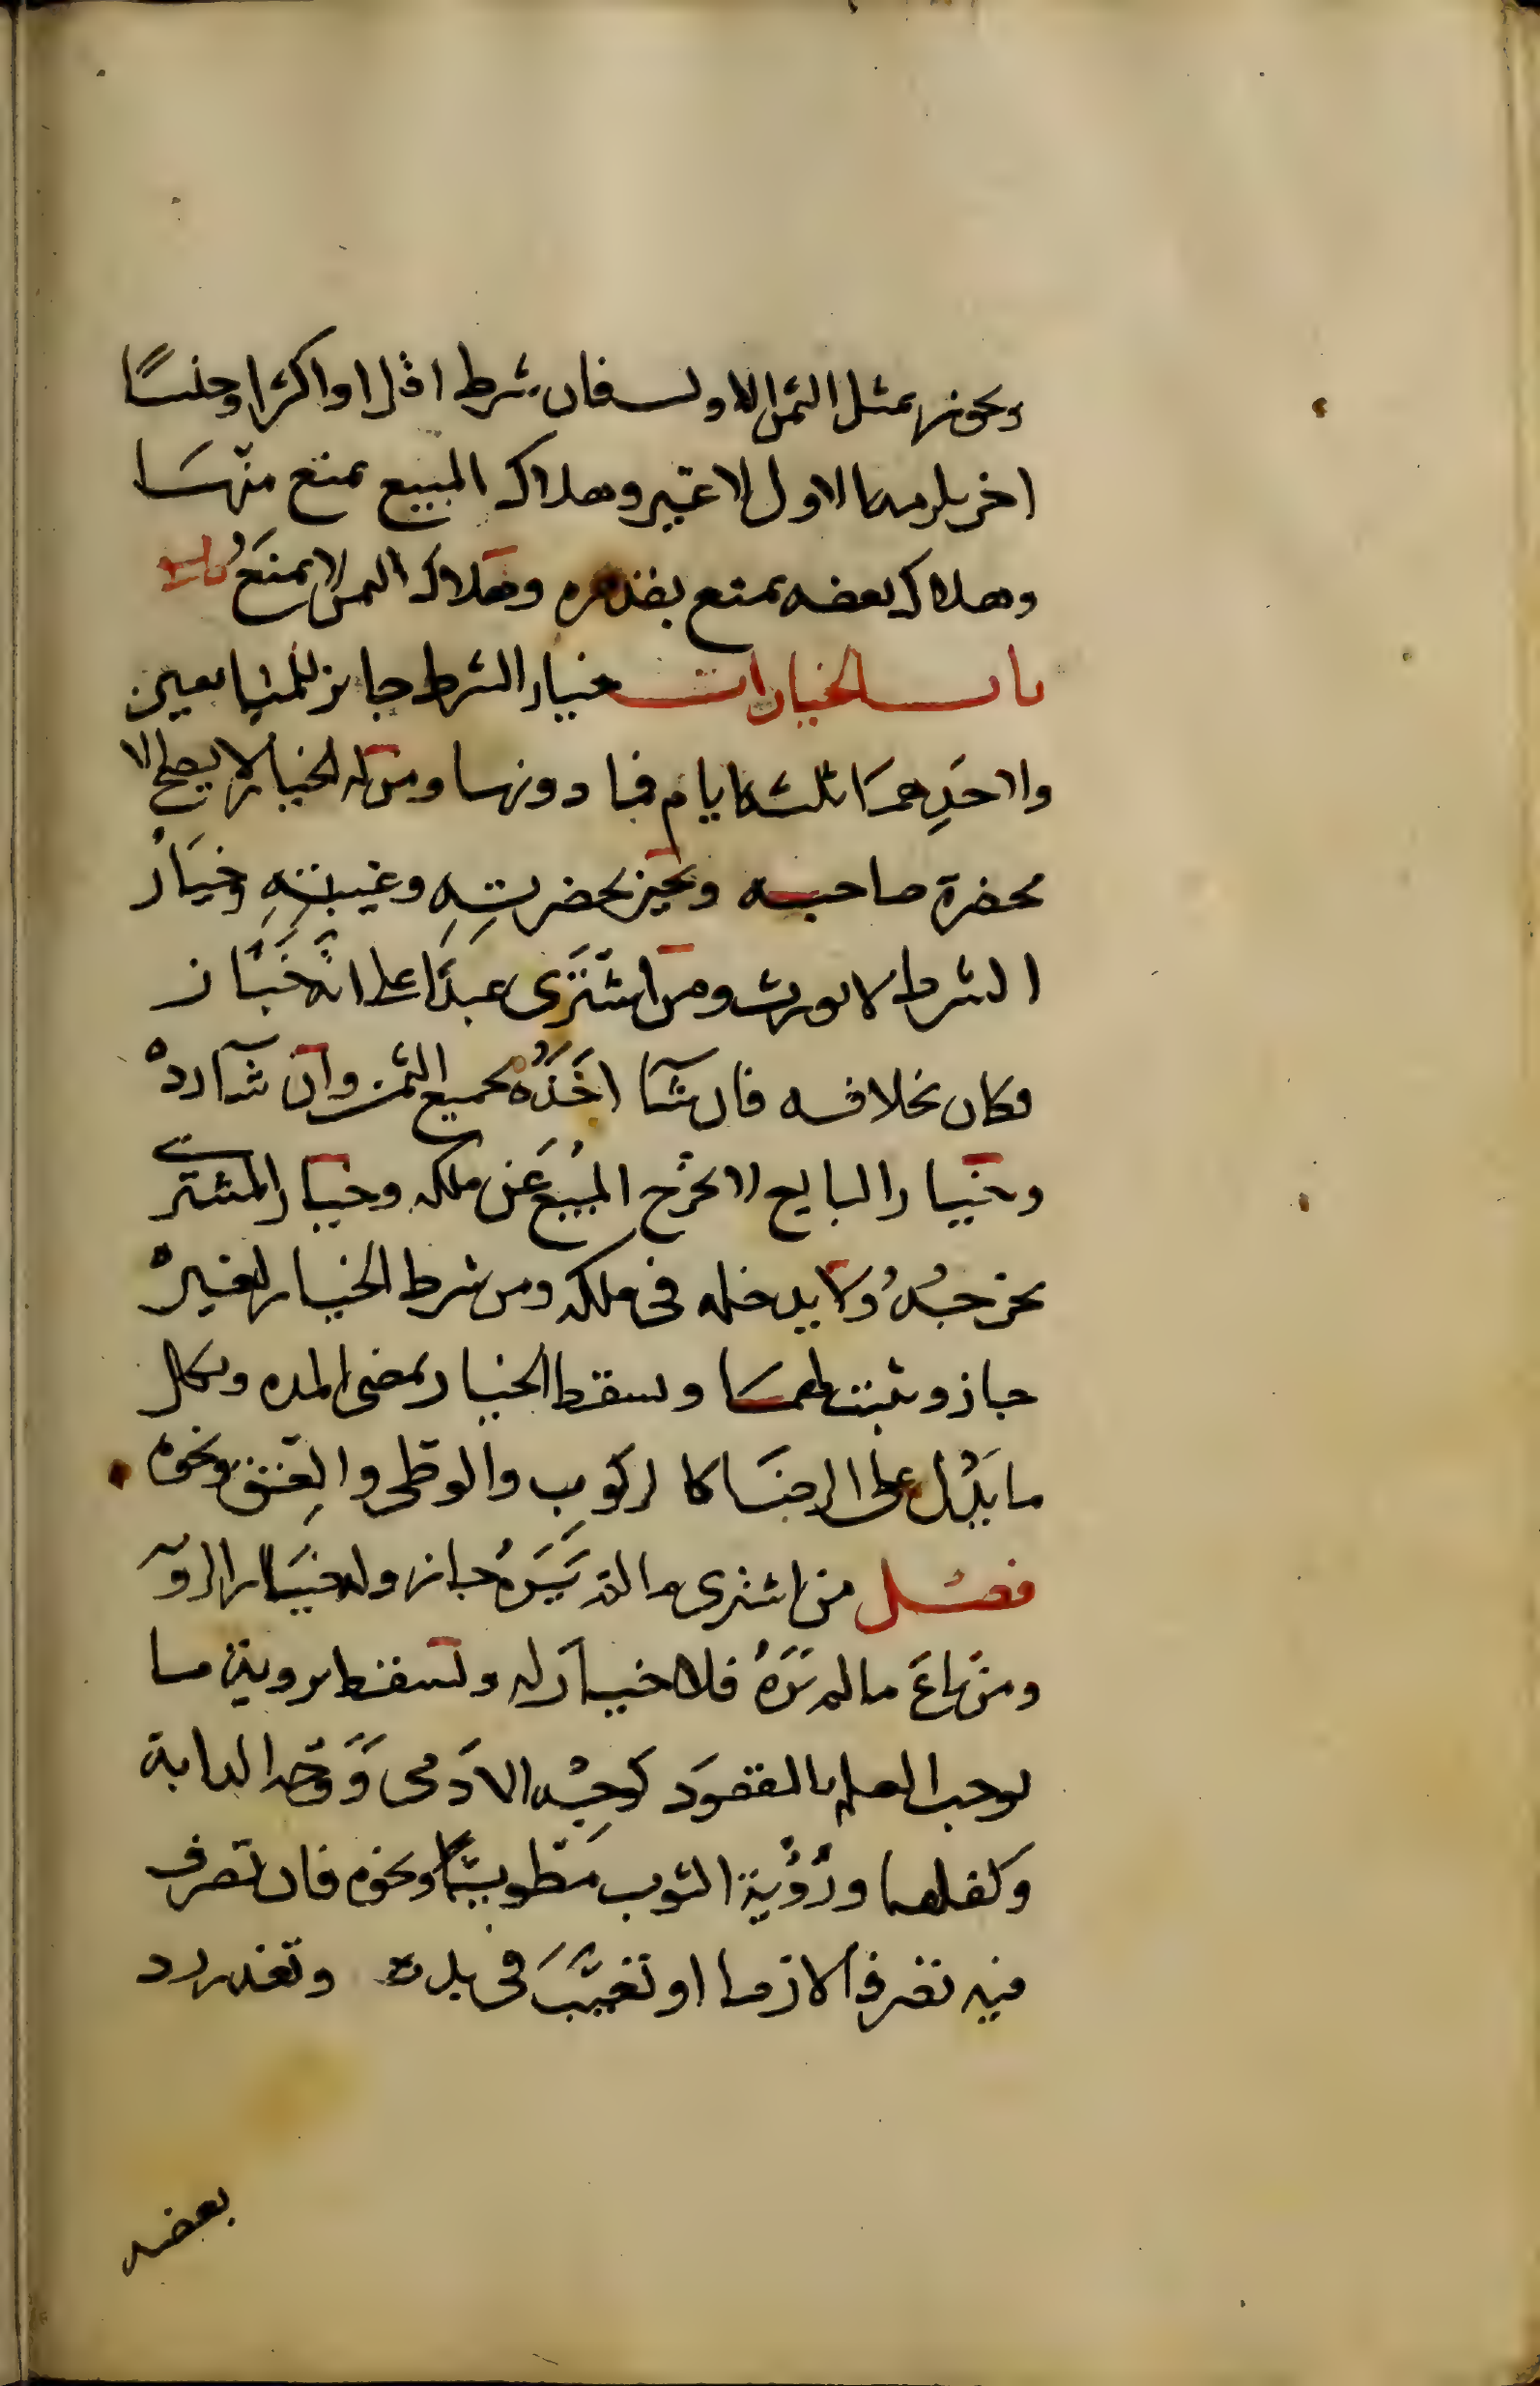 ويجوز بمثل الثمن الاول فان شرط اقل او اكثر او جنسًا
اخر يلزمه الاول لا غير وهلاك المبيع يمنع منها
وهلاك بعضه يمنع بقدره وهلاك الثمن لا يمنعُ
باب الخيارات خيار الشرط جايز للمتبايعين
ولاحَدِهمَا ثلثة ايام فما دونها ومن له الخيار لا يصح الا
بحضرة صاحبه ويجيز بحضرتِهِ وغيبتِهِ وخيَارُ
الشرط لا يورث ومن اشتَرَى عبدًا على انَّه خبَّاز
وكان بخلافه فان شآ اخَذَهُ بجميع الثمن وان شآ رده
وخيار البايع لا يخرج المبيعُ عَن ملكه وخيار المشترى
يخرجُهُ ولا يدخله فى ملكه ومن شرط الخيار لغيره
جاز وثبت لهما ويسقط الخيار بمضى المده وبكل
ما يَدُل على الرضَا كالركوبِ والوطى والعِتق ونحوه
فصل من اشترى ما لم يَرَهُ جاز وله خيَار الروية
ومن باعَ ما لم يَرَهُ فلا خيار له ويسقط بروية ما
يوجب العلم بالمقصود كوجِه الادَمى وَوَجه الدابة
وكفلها ورُؤية الثوب مَطويًّا ونحوه فان تصرف
فيه تصرفا لازما او تعيَّبَ فى يده وتعذر رد
بعضه